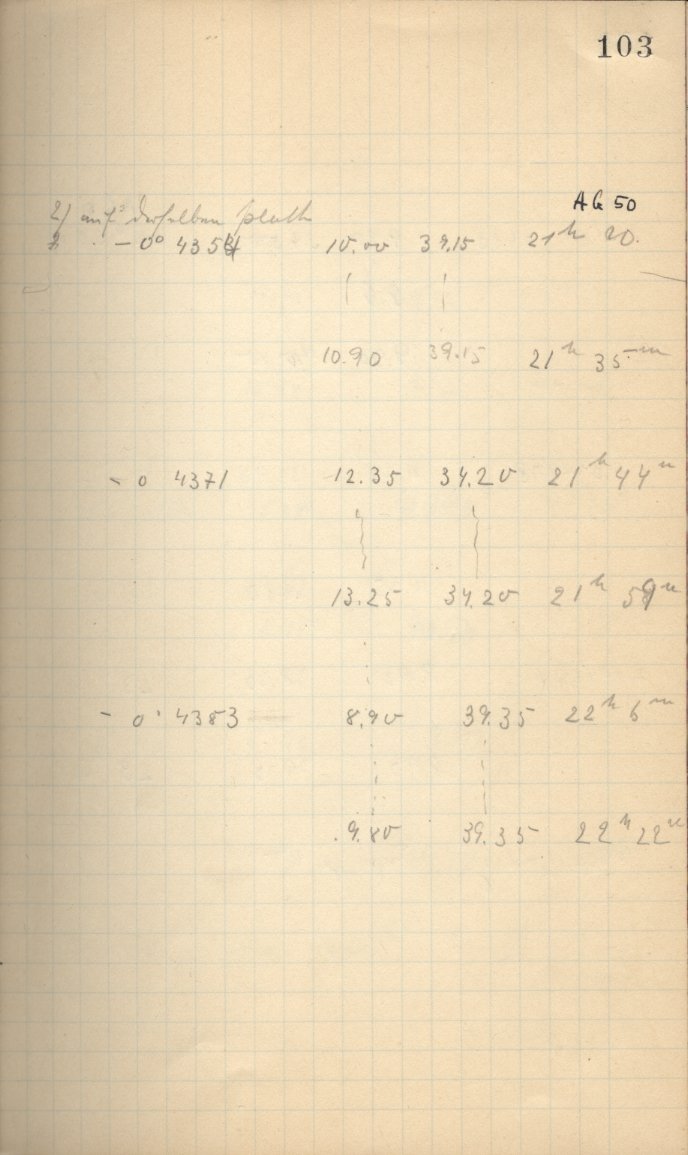 103
AG 50
2) auf derselben Platte
- 0° 4354 10.00 39.15 21h 20.
10.90 39.15 21h 35m
- 0 4371 12.35 34.20 21h 44m
13.25 34.20 21h 59m
- 0° 4383 8.90 39.35 22h 6m
9.80 39.35 22h 22m